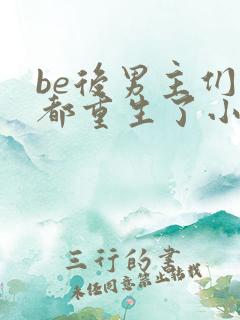 be後男主们
都重生了小
三行的書
未經同意禁止轉載